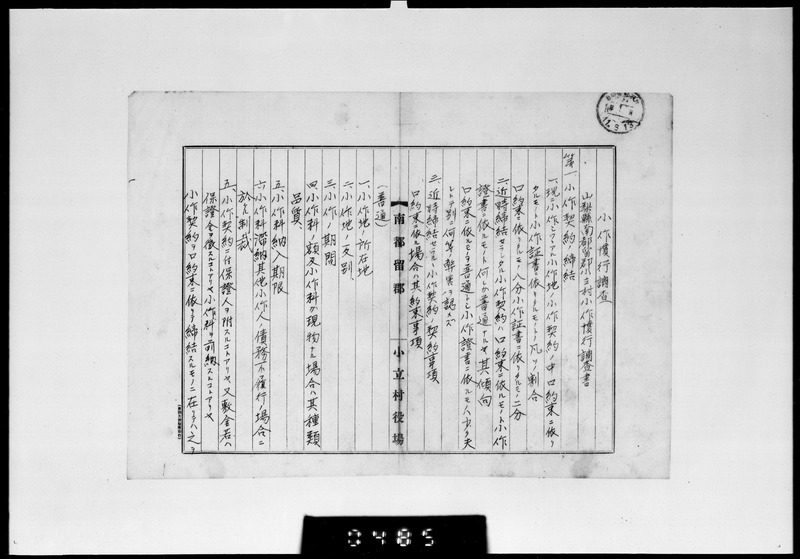 小作慣行調査
山梨縣南都留郡小立村小作慣行調査書
第一、小作契約ノ締結
一、現ニ小作シツヽアル小作地ノ小作契約ノ中口約束ニ依リ
タルモノト小作証書ニ依リタルモノトノ凡ソノ割合
口約束ニ依リタルモノ八分小作証書ニ依リタルモノ二分
二、近時締結セラルヽ小作契約ハ口約束ニ依ルモノト小作
證書ニ依ルモノト何レカ普通ナルヤ其傾向
口約束ニ依ルモノヲ普通トシ小作證書ニ依ルモノハ少ク夫
レトテ別ニ何等ノ事実ヲ認メズ
三、近時締結セラルヽ小作契約ノ契約事項
口約束ニ依ル場合ハ其約束事項
南都留郡 小立村役場
(普通)
一、小作地ノ所在地
二、小作地ノ反別
三、小作ノ期間
四、小作料ノ額及小作料カ現物ナル場合ハ其種類
品質
五、小作料納入期限
六、小作料滞納其他小作人ノ債務不履行ノ場合ニ
於ル制裁
五、小作契約ニ付保證人ヲ附スルコトアリヤ又敷金若ハ
保證金ヲ徴スルコトアリヤ小作料ヲ前納スルコトアリヤ
小作契約ヲ口約束ニ依リテ締結スルモノニ在リテハ之ヲ
0485